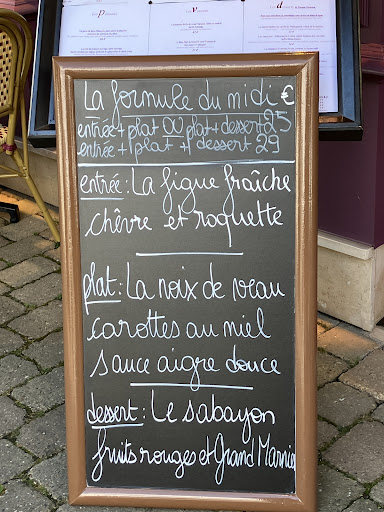 La formule du midi €
entrée + plat OU plat + dessert 25
entrée + 1 plat + 1 dessert 29
entrée : La figue fraîche
chêvre et roquette
plat : La noix de veau
carottes au miel
sauce aigre douce
dessert : Le sabayon
fruits rouges et Grand Marnier